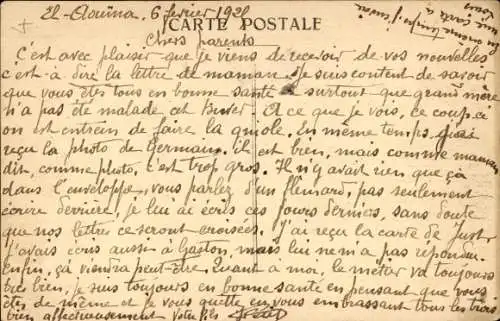 El-Aouina, 6 fevrier 1921
CARTE POSTALE
Chers parents
C'est avec plaisir que je viens de recevoir de vos nouvelles
c'est à dire la lettre de maman. Je suis content de savoir
que vous êtes tous en bonne santé et surtout que grand mère
n'a pas été malade cet hiver. A ce que je vois, ce coup ce
on est entrain de faire la gnole. En même temps, j'ai
reçu la photo de Germain, il est bien, mais comme maman
dit, comme photo, c'est trop gros. Il n'y avait rien que ça
dans l'enveloppe, vous parlez d'un flemard, pas seulement
écrire derrière, je lui ai écris ces jours derniers, sans doute
que nos lettres se seront croisées. J'ai reçu la carte de Just
j'avais écris aussi à Gaston, mais lui ne m'a pas répondu.
Enfin, ça viendra peut-être. Quant à moi, le métier va toujours
très bien, je suis toujours en bonne santé en pensant que vous
êtes de même et je vous quitte en vous embrassant tous les trois
bien affectueusement Votre fils
en même temps j'envoie
une carte à